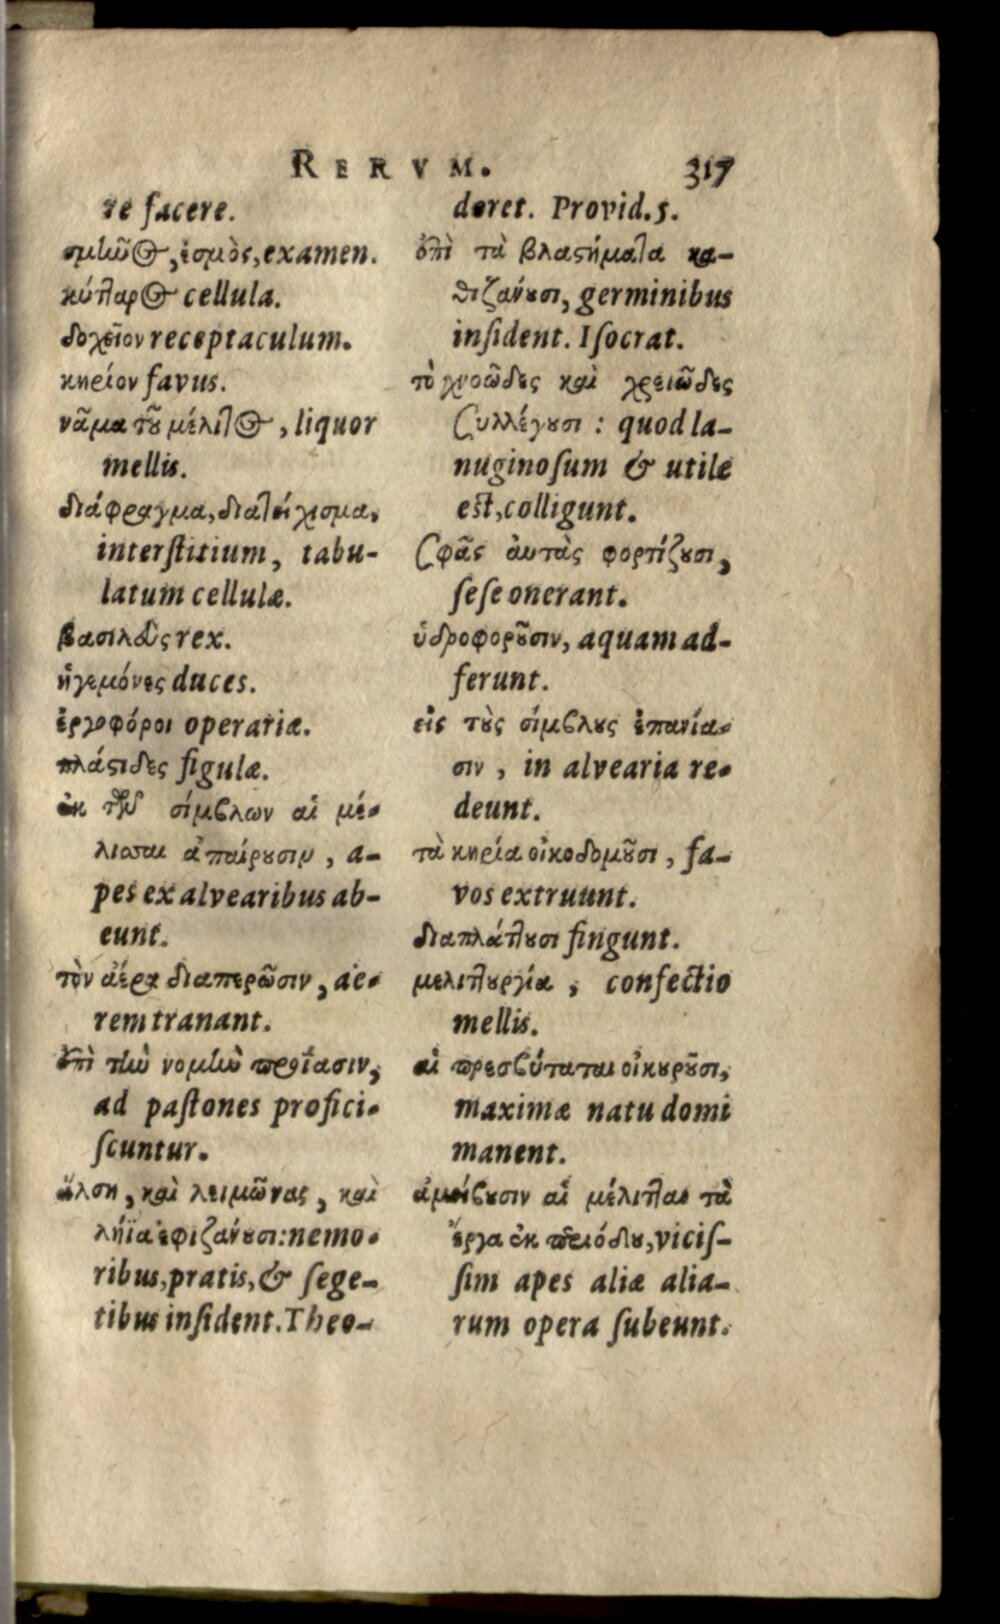 RERVM. 317
re facere.
σμῆνος, ἑσμὸς, examen.
κύτταρος cellula.
δοχεῖον receptaculum.
κηρίον favus.
νᾶμα τοῦ μέλιτος, liquor
mellis.
διάφραγμα, διατείχισμα,
interstitium, tabu-
latum cellulæ.
βασιλεὺς rex.
ἡγεμόνες duces.
ἐργοφόροι operariæ.
πλάστιδες figulæ.
ἐκ τῶν σίμβλων αἱ μέ-
λισσαι ἀπαίρουσιν, a-
pes ex alvearibus ab-
eunt.
τὸν ἀέρα διαπερῶσιν, ae-
rem tranant.
ἐπὶ τὴν νομὴν προΐασιν,
ad pastones profici-
scuntur.
ἄλση, καὶ λειμῶνας, καὶ
λήϊα ἐφιζάνουσι: nemo-
ribus, pratis, & sege-
tibus insident. Theo-
doret. Provid. 5.
ἐπὶ τὰ βλαστήματα κα-
θιζάνουσι, germinibus
insident. Isocrat.
τὸ χνοῶδες καὶ χρειῶδες
συλλέγουσι: quod la-
nuginosum & utile
est, colligunt.
σφᾶς αὐτὰς φορτίζουσι,
sese onerant.
ὑδροφοροῦσιν, aquam ad-
ferunt.
εἰς τοὺς σίμβλους ἐπανία-
σιν, in alvearia re-
deunt.
τὰ κηρία οἰκοδομοῦσι, fa-
vos extruunt.
διαπλάττουσι fingunt.
μελιττουργία, confectio
mellis.
αἱ πρεσβύταται οἰκουροῦσι,
maximæ natu domi
manent.
ἀμείβουσιν αἱ μέλιτται τὰ
ἔργα ἐκ περιόδου, vicis-
sim apes aliæ alia-
rum opera subeunt.